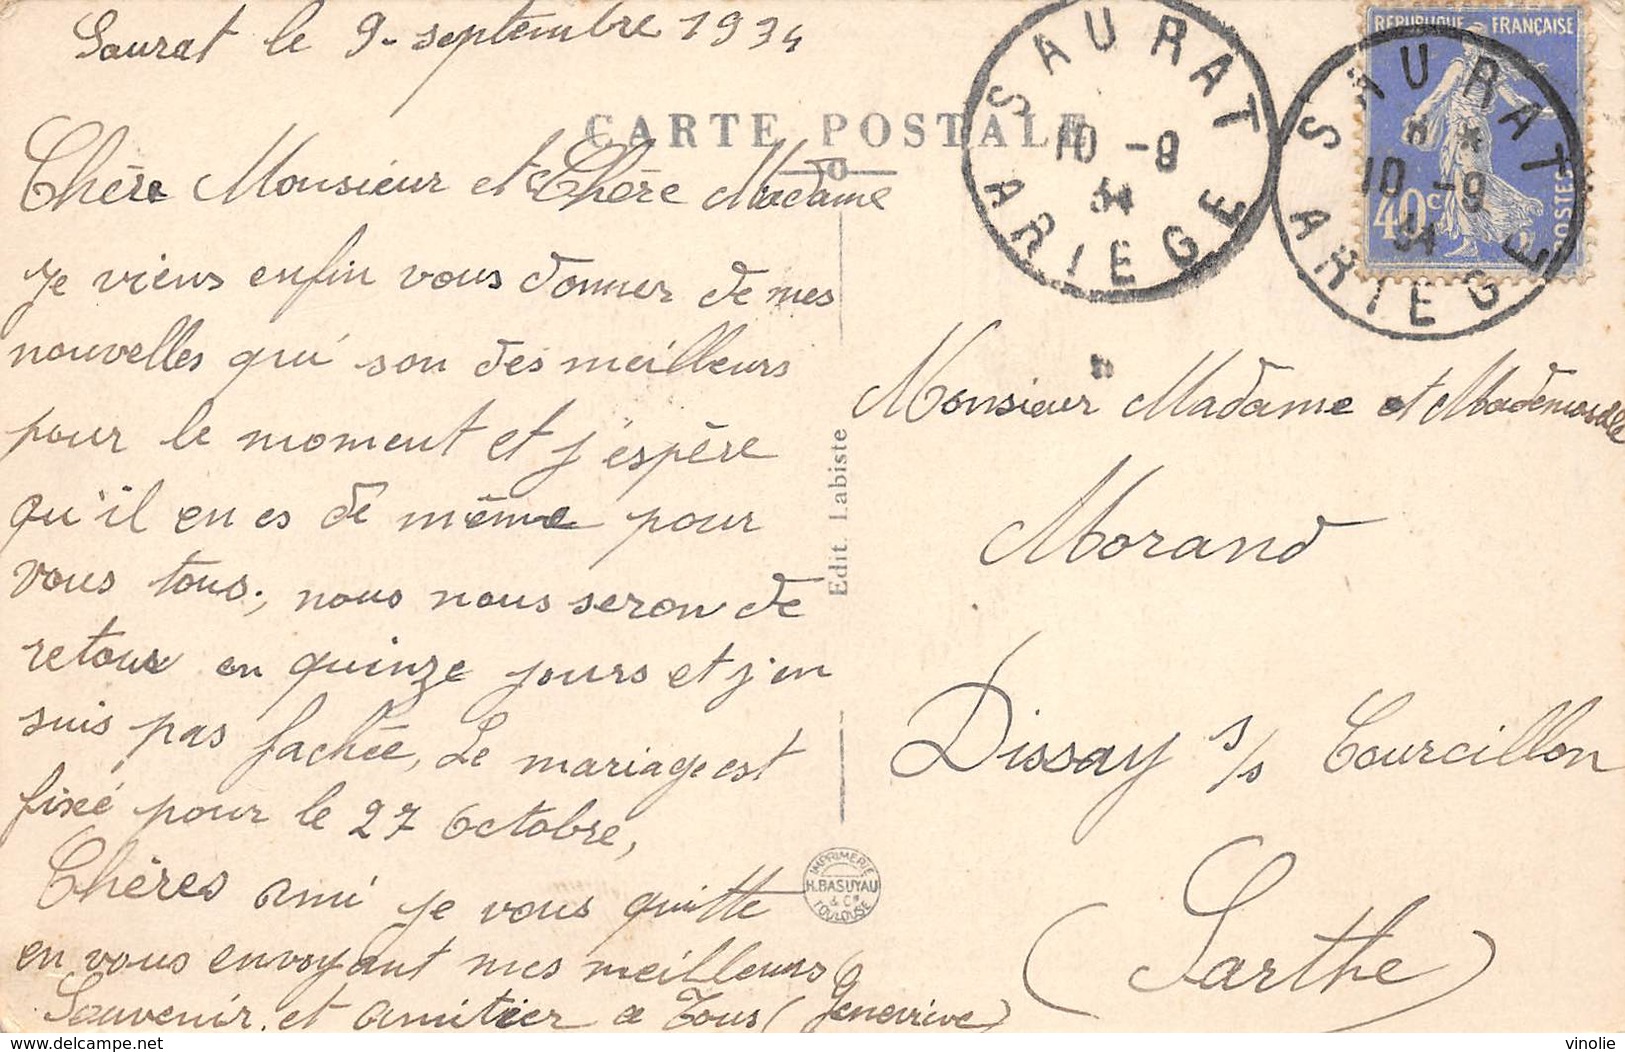 Saurat le 9 septembre 1934
CARTE POSTALE
Chère Monsieur et Chère Madame
Je viens enfin vous donner de mes
nouvelles qui son des meilleurs
pour le moment et j'espère
qu'il en es de même pour
vous tous., nous nous seron de
retour en quinze jours et j'en
suis pas fachée, Le mariage est
fixé pour le 27 Octobre,
Chères ami je vous quitte
en vous envoyant mes meilleurs
Souvenir et amitier a Tous (Genevieve)
Edit. Labiste
IMPRIMERIE
H. BASUYAU
& Cie
TOULOUSE
SAURAT
10 -9
34
ARIEGE
RÉPUBLIQUE FRANÇAISE
40c
POSTES
SAURAT
10 -9
34
ARIEGE
Monsieur Madame et Mademoiselle
Morand
Dissay s/s Courcillon
(Sarthe)
delcampe.net
vinolie